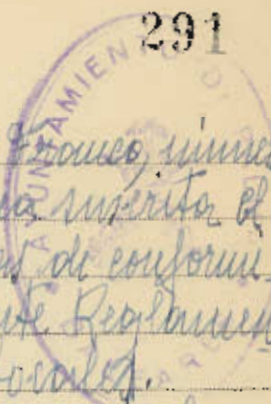 291
AYUNTAMIENTO
Franco, núme
suscrita el
de conformi-
te Reglamen
Locales.